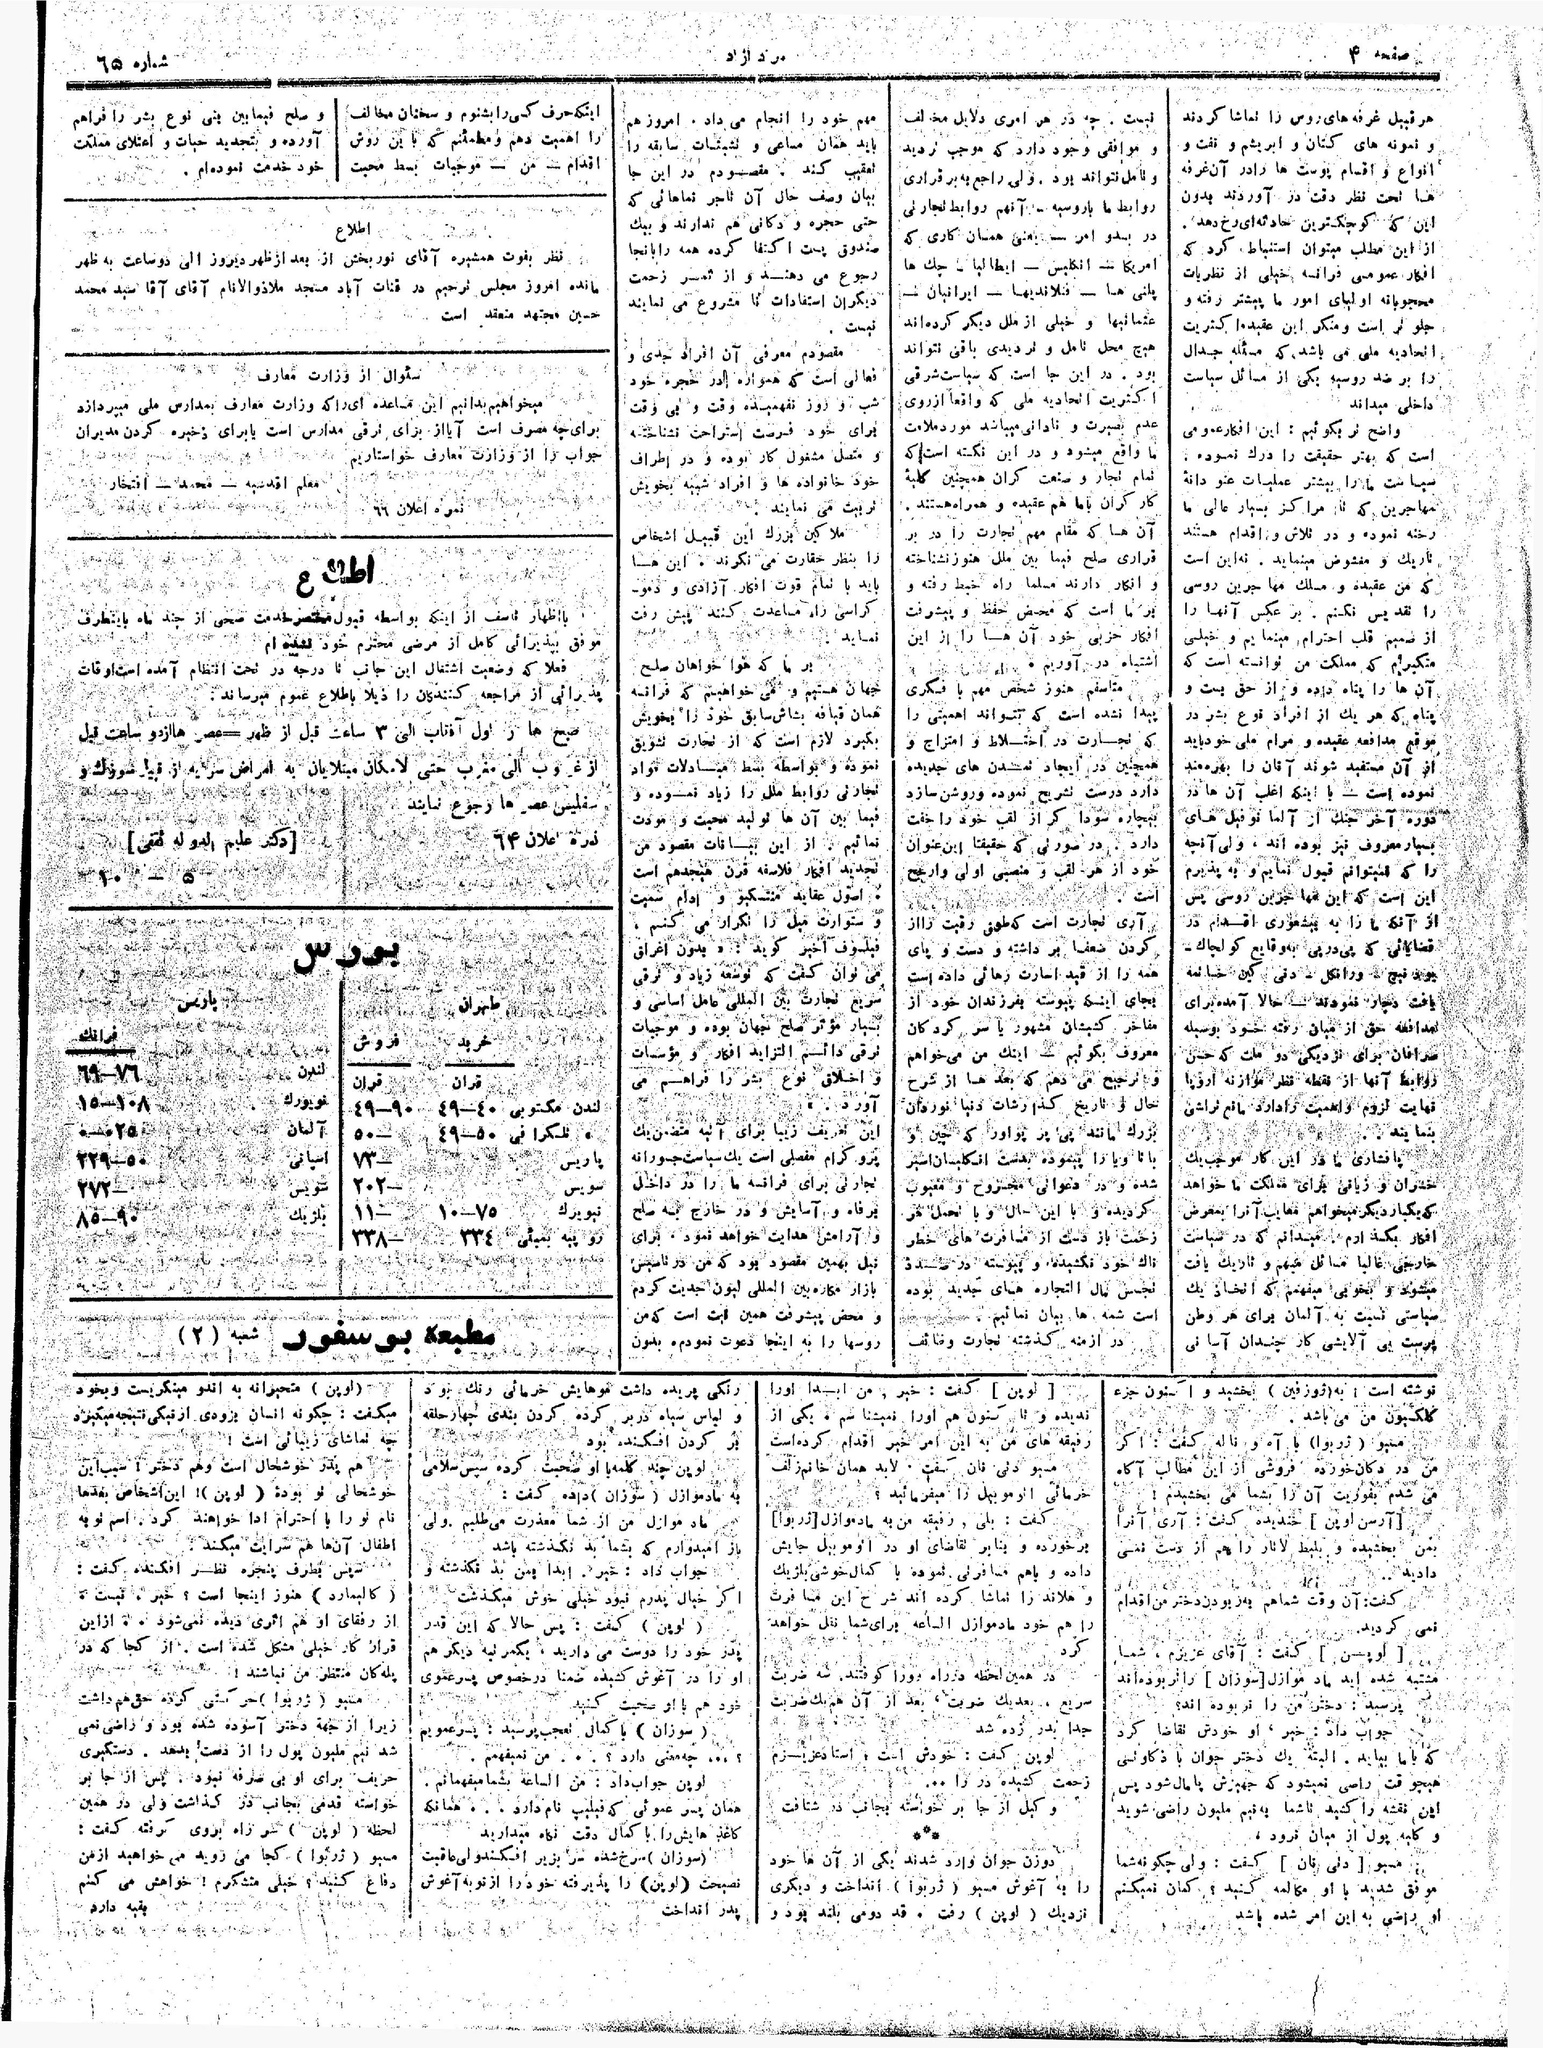 صفحه ۴
مرد آزاد
شماره ۶۵
هر قبیل غرفه های روس را تماشا کردند
و نمونه های کتان و ابریشم و نفت و
انواع و اقسام پوست ها را در آن غرفه
هـا تحت نظر دقت در آوردند بدون
این که کوچکترین حادثه ای رخ دهد .
از این مطلب میتوان استنباط کرد که
افکار عمومی فرانسه خیلی از نظریات
محجوبانه اولیای امور ما پیشتر رفته و
جلو تر است و منکر این عقیده اکثریت
اتحادیه ملی می باشد که مسئله جدال
را بر ضد روسیه یکی از مسائل سیاست
داخلی میداند
واضح تر بگوئیم : این افکار عمومی
است که بهتر حقیقت را درک نموده .
سیاست ما را بیشتر عملیات عنودانهٔ
مهاجرین که تا مراکز بسیار عالی ما
رخنه نموده و در تلاش و اقدام هستند
تاریک و مغشوش مینماید . نه این است
که من عقیده و مسلک مهاجرین روسی
را تقدیس نکنم . بر عکس آنها را
از صمیم قلب احترام مینمایم و خیلی
متکبرم که مملکت من توانسته است که
آن ها را پناه داده و از حق بست و
پناه که هر یک از افراد نوع بشر در
موقع مدافعه عقیده و مرام ملی خود باید
از آن مستفید شوند آنان را بهره مند
نموده است – با اینکه اغلب آن ها در
دوره آخر جنگ از آلمانوفیل های
بسیار معروف نیز بوده اند ، ولی آنچه
را که نمیتوانم قبول نمایم و به پذیرم
این است که این مهاجرین روسی پس
از آنکه ما را به پیشعوری اقـدام در
قضایائی که پی در پی به وقایع کولچاک –
یودنیچ – ورانگل – دنی کین خـاتمه
یافت دچار نمودند – حالا آمده برای
مدافعه حق از میان رفته خود بوسیله
صرافان برای نزدیکی دو ملت که حسن
روابط آنها از نقطه نظر موازنه اروپا
نهایت لزوم و اهمیت را دارد مانع تراشی
بنمایند .
پافشاری ما در این کار موجب یک
خسران و زیانی برای مملکت ما خواهد
که یکبار دیگر میخواهم معایب آنرا بمعرض
افکار بگذارم . میدانم که در سیاست
خارجی غالبا مسائل مبهم و تاریک یافت
میشود و بخوبی میفهمم که اتخاذ یک
سیاستی نسبت به آلمان برای هر وطن
پرست بی آلایشی کار چندان آسانی
نیست . چه در هر امری دلایل مخالف
و موافقی وجود دارد که موجب تردید
و تامل نتواند بود . ولی راجع به برقراری
روابط ما با روسیه – آنهم روابط تجارتی
در بدو امر – یعنی همان کاری که
امریکا – انگلیس – ایطالیا – چک ها
پلنی ها – فنلاندیها – ایرانیان –
عثمانیها و خیلی از ملل دیگر کرده اند
هیچ محل تامل و تردیدی باقی نتواند
بود . در این جا است که سیاست شرقی
اکثریت اتحادیه ملی که واقعا از روی
عدم بصیرت و نادانی میباشد مورد ملامت
ما واقع میشود و در این نکته است که
تمام تجار و صنعت گران همچنین کلیهٔ
کارگران با ما هم عقیده و همراه هستند .
آن هـا که مقام مهم تجارت را در بر
قراری صلح فیما بین ملل هنوز نشناخته
و انکار دارند مسلما راه خبط رفته و
بر ما است که محض حفظ و پیشرفت
افکار حزبی خود آن هـا را از این
اشتباه در آوریم .
متاسفم هنوز شخص مهم با فکری
پیدا نشده است که بتواند اهمیتی را
که تجـارت در اختـلاط و امتزاج و
همچنین در ایجاد تمـدن های جدیده
دارد درست تشریح نموده و روشن سازد
بیچاره سوداگر از لقب خود را خفت
دارد . در صورتی که حقیقتا این عنوان
خود از هر لقب و منصبی اولی و ارجح
است .
آری تجارت است که طوق رقیت را از
گردن ضعفا بر داشته و دست و پای
همه را از قید اسارت رهائی داده است
بجای اینکه پیوسته بفرزندان خود از
مفاخر کشیشان مشهور یا سر کردگان
معروف بگوئیم – اینک من می خواهم
و ترجیح می دهم که بعد هـا از شرح
حال و تاریخ گذارشات دنیا نوردان
بزرگ مانند پی یر پواور که چین و
باتاویا را پیموده بدست انگلیسان اسیر
شده و در دعوائی مجروح و معیوب
گردیده و با این حال و با تحمل هر
زحمت باز دست از مسافرت های خطر
ناک خود نکشیده و پیوسته در صـدد
تجسس مال التجاره هـای جدید بوده
است شمه ها بیان نمائیم .
در ازمنه گذشته تجارت وظائف
مهم خود را انجام می داد . امروز هم
باید همان مساعی و تشبثات سابقه را
تعقیب کند . مقصـودم در این جا
بیان وصف حال آن تاجر نماهائی که
حتی حجره و دکانی هم ندارند و بیک
صندوق پست اکتفا کرده همه را بانجا
رجوع می دهنـد و از ثمـر زحمت
دیگران استفادات نا مشروع می نمایند
نیست .
مقصودم معرفی آن افراد جدی و
فعالی است که همواره در حجره خود
شب و روز نفهمیده وقت و بی وقت
برای خود فـرصت استراحت نشناخته
و متصل مشغول کار بوده و در اطراف
خود خانواده ها و افراد شبیه بخویش
تربیت می نمایند .
ملاکین بزرگ این قبیـل اشخاص
را بنظر حقارت می نگرند . این هـا
باید با تمام قوت افکار آزادی و دمو-
کراسی راه مساعدت کنند پیش رفت
نماید .
بر ما که هوا خواهان صلح
جهان هستیم و می خواهیم که فرانسه
همان قیافه بشاش سابق خود را بخویش
بگیرد لازم است که از تجارت تشویق
نموده و بواسطه بسط مبـادلات مواد
تجارتی روابط ملل را زیاد نمـوده و
فیما بین آن ها تولید محبت و مودت
نمائیم . از این بیـانات مقصود من
تجدید افکار فلاسفه قرن هیجدهم است
. اصول عقاید منتسکیو و ادام سمیت
و ستوارت میل را تکرار می کنـم .
فیلسوف اخیر گوید : « بدون اغراق
می توان گفت که توسعه زیاد و ترقی
سریع تجارت بین المللی عامل اساسی و
بسیار مؤثر صلح جهان بوده و موجبات
ترقی دائـم التزاید افکار و مؤسسات
و اخـلاق نوع بشر را فراهـم می
آورد . »
این تعریف زیبا برای آتیه متضمن یک
پرو گرام مفصلی است یک سیاست جسورانه
تجارتی برای فرانسه ما را در داخل
برفاه و آسایش و در خارج بـه صلح
و آرامش هدایت خواهد نمود . برای
نیل بهمین مقصود بود که من در تاسیس
بازار مکاره بین المللی لیون جدیت کردم
و محض پیشرفت همین نیت است که من
روسها را به اینجا دعوت نمودم . بدون
اینکه حرف کسی را بشنوم و سخنان مخالف
را اهمیت دهم و مطمئنم که با این روش
اقدام – من – موجبات بسط محبت
و صلح فیمابین بنی نوع بشر را فراهم
آورده و بتجدید حیات و اعتلای مملکت
خود خدمت نموده ام .
اطلاع
نظر بفوت همشیره آقای نوربخش از بعد از ظهر دیروز الی دو ساعت به ظهر
مانده امروز مجلس ترحیم در قنات آباد مسجد ملاذ الانام آقای آقا سید محمد
حسین مجتهد منعقد است
سئوال از وزارت معارف
میخواهیم بدانیم این مساعده ای را که وزارت معارف بمدارس ملی میپردازد
برای چه مصرف است آیا از برای ترقی مدارس است یا برای ذخیره کردن مدیران
جواب را از وزارت معارف خواستاریم
معلم اقدسیه – محمد – افتخار
نمره اعلان ۶۶
اطلاع
با اظهار تاسف از اینکه بواسطه قبول مختصر خدمت صحی از چند ماه باینطرف
موفق بپذیرائی کامل از مرضی محترم خود نشده ام
فعلا که وضعیت اشتغال این جانب تا درجه در تحت انتظام آمده است اوقات
پذیرائی از مراجعه کنندگان را ذیلا باطلاع عموم میرساند :
صبح ها از اول آفتاب الی ۳ ساعت قبل از ظهر – عصر ها از دو ساعت قبل
از غروب الی مغرب حتی الامکان مبتلایان به امراض سرایه از قبیل سوزنک و
سفلیس عصر ها رجوع نمایند
نمره اعلان ۶۴
[دکتر علیم الدوله ثقفی]
۵ – ۱۰
بورس
طهران
خرید فروش
قران قران
لندن مکتوبی ۴۰–۴۹ ۹۰–۴۹
« تلگرافی ۵۰–۴۹ –۵۰
پاریس –۷۳
سویس –۲۰۲
نیویرک ۷۵–۱۰ –۱۱
روپیه بمبئی ۳۳۴ –۳۳۸
پاریس
فرانک
لندن ۷۶–۶۹
نویورک ۱۰۸–۱۵
آلمان ۰۲۵–۰
اسپانی ۵۰–۲۲۹
سویس –۲۷۲
بلژیک ۹۰–۸۵
مطبعهٔ بوسفور شعبه ( ۲ )
نوشته است : به (ژوزفین) بخشید و اکنون جزء
کلکسیون من می باشد .
مسیو (ژربوا) با آه و ناله گفت : اگر
من در دکان خورده فروشی از این مطالب آگاه
می شدم بفوریت آن را بشما می بخشیدم !
[آرسن لوپن] خندیده گفت : آری آنرا
بمن بخشیده و بلیط لاتار را هم از دست نمی
دادید ..
گفت: آن وقت شما هم به ربودن دختر من اقدام
نمی کردید.
[ لوپـن ] گفت : آقای عزیزم ، شما
مشتبه شده اید ماد موازل [سوزان] را نربوده اند
پرسید : دختر من را نربوده اند؟
جواب داد : خیر ، او خودش تقاضا کرد
که با ما بیاید . البته یک دختر جوان با ذکاوتی
هیچوقت راضی نمیشود که جهیزش پامال شود پس
این نقشه را کشید تا شما به نیم ملیون راضی شوید
و کلیه پول از میان نرود .
مسیو [ دتی نان ] گفت : ولی چگونه شما
موفق شدید با او مکالمه کنید ؟ گمان نمیکنم
او راضی به این امر شده باشد
[ لوپن ] گفت : خیر ، من ابـدا اورا
ندیده و تا کنون هم اورا نمیشناسم . یکی از
رفیقه های من به این امر خیر اقدام کرده است
مسیو دتی نان گفت . لابد همان خانم زلف
خرمائی اتوموبیل را میفرمائید ؟
گفت : بلی . رفیقه من به مادموازل [ژربوا]
برخورده و بنابر تقاضای او در اتوموبیل جایش
داده و باهم مسافرتی نموده با کمال خوشی بلژیک
و هلاند را تماشا کرده اند شرح این مسافرت
را هم خود مادموازل الساعه برای شما نقل خواهد
کرد
در همین لحظه در راه رو را کوفتند. سه ضربت
سریع . بعد یک ضربت ، بعد از آن هم یک ضربت
جدا بدر زده شد
لوپن گفت : خودش است ، استاد عزیـزم
زحمت کشیده در را ...
و کیل از جا بر خواسته بجانب در شتافت
***
دو زن جوان وارد شدند یکی از آن ها خود
را به آغوش مسیو ( ژربوا ) انداخت و دیگری
نزدیک ( لوپن ) رفت . قد دومی بلند بود و
رنگی پریده داشت موهایش خرمائی رنگ بود
و لباس سیاه در بر کرده گردن بندی چهار حلقه
بر گردن افکنده بود
لوپن چند کلمه با او صحبت کرده سپس سلامی
به مادموازل ( سوزان ) داده گفت :
ماد موازل من از شما معذرت می طلبم . ولی
باز امیدوارم که بشما بد نگذشته باشد
جواب داد : خیر . ابدا بمن بد نگذشته و
اگر خیال پدرم نبود خیلی خوش میگذشت
( لوپن ) گفت : پس حالا که این قدر
پدر خود را دوست می دارید ، یکمرتبه دیگر هم
او را در آغوش کشیده ضمنا در خصوص پسر عموی
خود هم با او صحبت کنید
( سوزان ) با کمال تعجب پرسید : پسر عمویم
؟ ... چه معنی دارد ؟ . . . من نمیفهمم .
لوپن جواب داد : من الساعه بشما میفهمانم .
همان پسر عموئی که فیلیپ نام دارد . . . همانکه
کاغذ هایش را با کمال دقت نگاه میدارید
(سوزان) سرخ شده سر بزیر افکند ولی عاقبت
نصیحت (لوپن) را پذیرفته خود را از نو به آغوش
پدر انداخت
(لوپن) متحیرانه به اندو مینگریست و بخود
میگفت : چگونه انسان بزودی از نیکی نتیجه میگیرد
چه تماشای زیبائی است !
هم پدر خوشحال است و هم دختر ! سبب این
خوشحالی تو بودهٔ ( لوپن )! این اشخاص بعدها
نام تو را با احترام ادا خواهند کرد . اسم تو به
اطفال آن ها هم سرایت میکند .
سپس بطرف پنجره نظـر افکنده گفت :
( گانیمارد ) هنوز اینجا است ؟ خیر . نیست .
از رفقای او هم اثری دیده نمی شود . از این
قرار کار خیلی مشکل شده است . از کجا که در
پله کان منتظر من نباشند !
مسیو ( ژربوا ) حرکتی کرده حق هم داشت
زیرا از جهة دختر آسوده شده بود و راضی نمی
شد نیم ملیون پول را از دست بدهد . دستگیری
حریف برای او بی صرفه نبود . پس از جا بر
خواسته قدمی بجانب در گذاشت ولی در همین
لحظه ( لوپن ) سر راه بروی گرفته گفت :
مسیو ( ژربوا ) کجا می روید می خواهید از من
دفاع کنید ؟ خیلی متشکرم ! خواهش می کنم
بقیه دارد